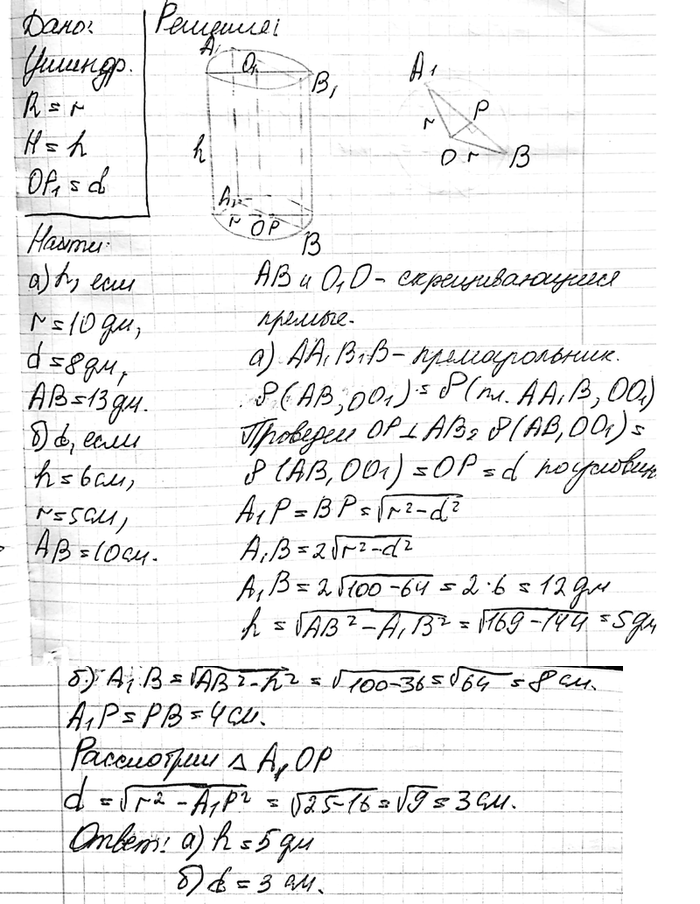 Дано:
Цилиндр.
R = r
H = h
OP₁ = d
Найти:
а) h, если
r = 10 дм,
d = 8 дм,
AB = 13 дм.
б) d, если
h = 6 см,
r = 5 см,
AB = 10 см.
Решение:
A₁
O₁
B₁
h
A₁
r
O P
B
A₁
r
P
O r B
AB и O₁O - скрещивающиеся
прямые.
а) AA₁B₁B - прямоугольник.
ρ(AB, OO₁) = ρ(пл. AA₁B, OO₁)
Проведем OP ⊥ AB, ρ(AB, OO₁) =
ρ(AB, OO₁) = OP = d по условию
A₁P = BP = √r² - d²
A₁B = 2√r² - d²
A₁B = 2√100 - 64 = 2·6 = 12 дм
h = √AB² - A₁B² = √169 - 144 = 5 дм
б) A₁B = √AB² - h² = √100 - 36 = √64 = 8 см.
A₁P = PB = 4 см.
Рассмотрим △ A₁OP
d = √r² - A₁P² = √25 - 16 = √9 = 3 см.
Ответ: а) h = 5 дм
б) d = 3 см.